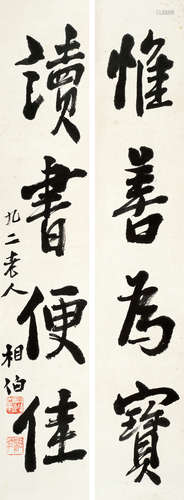 惟善為寶
讀書便佳
九二老人
相伯